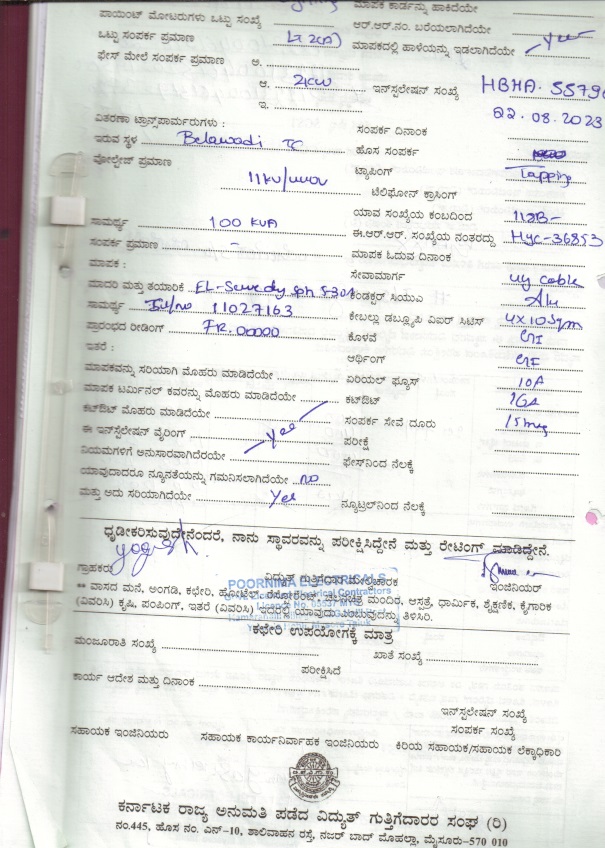 ಮಾಪಕ ಕಾರ್ಡನ್ನು ಹಾಕಿದೆಯೇ
ಪಾಯಿಂಟ್ ಮೋಟರುಗಳು ಒಟ್ಟು ಸಂಖ್ಯೆ
ಆರ್.ಆರ್.ನಂ. ಬರೆಯಲಾಗಿದೆಯೇ
ಒಟ್ಟು ಸಂಪರ್ಕ ಪ್ರಮಾಣ
ಮಾಪಕದಲ್ಲಿ ಹಾಳೆಯನ್ನು ಇಡಲಾಗಿದೆಯೇ Yes
ಫೇಸ್ ಮೇಲೆ ಸಂಪರ್ಕ ಪ್ರಮಾಣ ಅ.
ಆ. 2KW ಇನ್‌ಸ್ಟಲೇಷನ್ ಸಂಖ್ಯೆ HBHA. 5579
ಇ. 22.08.2023
ವಿತರಣಾ ಟ್ರಾನ್ಸ್‌ಪಾರ್ಮರುಗಳು : ಸಂಪರ್ಕ ದಿನಾಂಕ
ಇರುವ ಸ್ಥಳ Belawadi TC ಹೊಸ ಸಂಪರ್ಕ
ವೋಲ್ಟೇಜ್ ಪ್ರಮಾಣ ಟ್ಯಾಪಿಂಗ್ Tapping
ಟೆಲಿಫೋನ್ ಕ್ರಾಸಿಂಗ್
ಯಾವ ಸಂಖ್ಯೆಯ ಕಂಬದಿಂದ
ಸಾಮರ್ಥ್ಯ 100 KVA ಈ.ಆರ್.ಆರ್. ಸಂಖ್ಯೆಯ ನಂತರದ್ದು Hyc-36853
ಸಂಪರ್ಕ ಪ್ರಮಾಣ - ಮಾಪಕ ಓದುವ ದಿನಾಂಕ
ಮಾಪಕ : ಸೇವಾಮಾರ್ಗ ug cable
ಮಾದರಿ ಮತ್ತು ತಯಾರಿಕೆ ಕಂಡಕ್ಟರ್ ಸಿಯುಎ Alu
ಸಾಮರ್ಥ್ಯ 11027163 ಕೇಬಲ್ಲು ಡಬ್ಲ್ಯೂಪಿ ವಿಪರ್ ಸಿಟಿಸ್ 4x10Sqm
ಪ್ರಾರಂಭದ ರೀಡಿಂಗ್ FR.00000 ಕೊಳವೆ GI
ಇತರೆ : ಅರ್ಥಿಂಗ್ GI
ಮಾಪಕವನ್ನು ಸರಿಯಾಗಿ ಮೊಹರು ಮಾಡಿದೆಯೇ ಏರಿಯಲ್ ಫ್ಯೂಸ್ 10A
ಮಾಪಕ ಟರ್ಮಿನಲ್ ಕವರನ್ನು ಮೊಹರು ಮಾಡಿದೆಯೇ ಕಟ್‌ಔಟ್ 16A
ಕಟ್‌ಔಟ್ ಮೊಹರು ಮಾಡಿದೆಯೇ ಸಂಪರ್ಕ ಸೇವೆ ದೂರು
ಈ ಇನ್‌ಸ್ಟಲೇಷನ್ ವೈರಿಂಗ್ Yes ಪರೀಕ್ಷೆ
ನಿಯಮಗಳಿಗೆ ಅನುಸಾರವಾಗಿದೆರೆಯೇ ಫೇಸ್‌ನಿಂದ ನೆಲಕ್ಕೆ
ಯಾವುದಾದರೂ ನ್ಯೂನತೆಯನ್ನು ಗಮನಿಸಲಾಗಿದೆಯೇ no
ಮತ್ತು ಅದು ಸರಿಯಾಗಿದೆಯೇ Yes ನ್ಯೂಟ್ರಲ್‌ನಿಂದ ನೆಲಕ್ಕೆ
ಧೃಡೀಕರಿಸುವುದೇನೆಂದರೆ, ನಾನು ಸ್ಥಾವರವನ್ನು ಪರೀಕ್ಷಿಸಿದ್ದೇನೆ ಮತ್ತು ರೇಟಿಂಗ್ ಮಾಡಿದ್ದೇನೆ.
ಗ್ರಾಹಕರು ವಿದ್ಯುತ್ ಗುತ್ತಿಗೆದಾರ ಮೇಲ್ವಿಚಾರಕ ಇಂಜಿನಿಯರ್
POORNIMA ELECTRICALS
Electrical Contractors
** ವಾಸದ ಮನೆ, ಅಂಗಡಿ, ಕಛೇರಿ, ಹೋಟೆಲ್, ಮಂದಿರ, ಆಸ್ಪತ್ರೆ, ಧಾರ್ಮಿಕ, ಶೈಕ್ಷಣಿಕ, ಕೈಗಾರಿಕ
(ವಿವರಿಸಿ) ಕೃಷಿ, ಪಂಪಿಂಗ್, ಇತರೆ (ವಿವರಿಸಿ) ಇದರಲ್ಲಿ ಯಾವುದು ಎಂಬುವುದನ್ನು ತಿಳಿಸಿರಿ.
ಕಛೇರಿ ಉಪಯೋಗಕ್ಕೆ ಮಾತ್ರ
ಮಂಜೂರಾತಿ ಸಂಖ್ಯೆ ಖಾತೆ ಸಂಖ್ಯೆ
ಪರೀಕ್ಷಿಸಿದೆ
ಕಾರ್ಯ ಆದೇಶ ಮತ್ತು ದಿನಾಂಕ
ಇನ್‌ಸ್ಟಲೇಷನ್ ಸಂಖ್ಯೆ
ಸಂಪರ್ಕ ಸಂಖ್ಯೆ
ಸಹಾಯಕ ಇಂಜಿನಿಯರು ಸಹಾಯಕ ಕಾರ್ಯನಿರ್ವಾಹಕ ಇಂಜಿನಿಯರು ಕಿರಿಯ ಸಹಾಯಕ/ಸಹಾಯಕ ಲೆಕ್ಕಾಧಿಕಾರಿ
ಕರ್ನಾಟಕ ರಾಜ್ಯ ಅನುಮತಿ ಪಡೆದ ವಿದ್ಯುತ್ ಗುತ್ತಿಗೆದಾರರ ಸಂಘ (ರಿ)
ನಂ.445, ಹೊಸ ನಂ. ಎನ್-10, ಶಾಲಿವಾಹನ ರಸ್ತೆ, ನಜರ್ ಬಾದ್ ಮೊಹಲ್ಲಾ, ಮೈಸೂರು-570 010